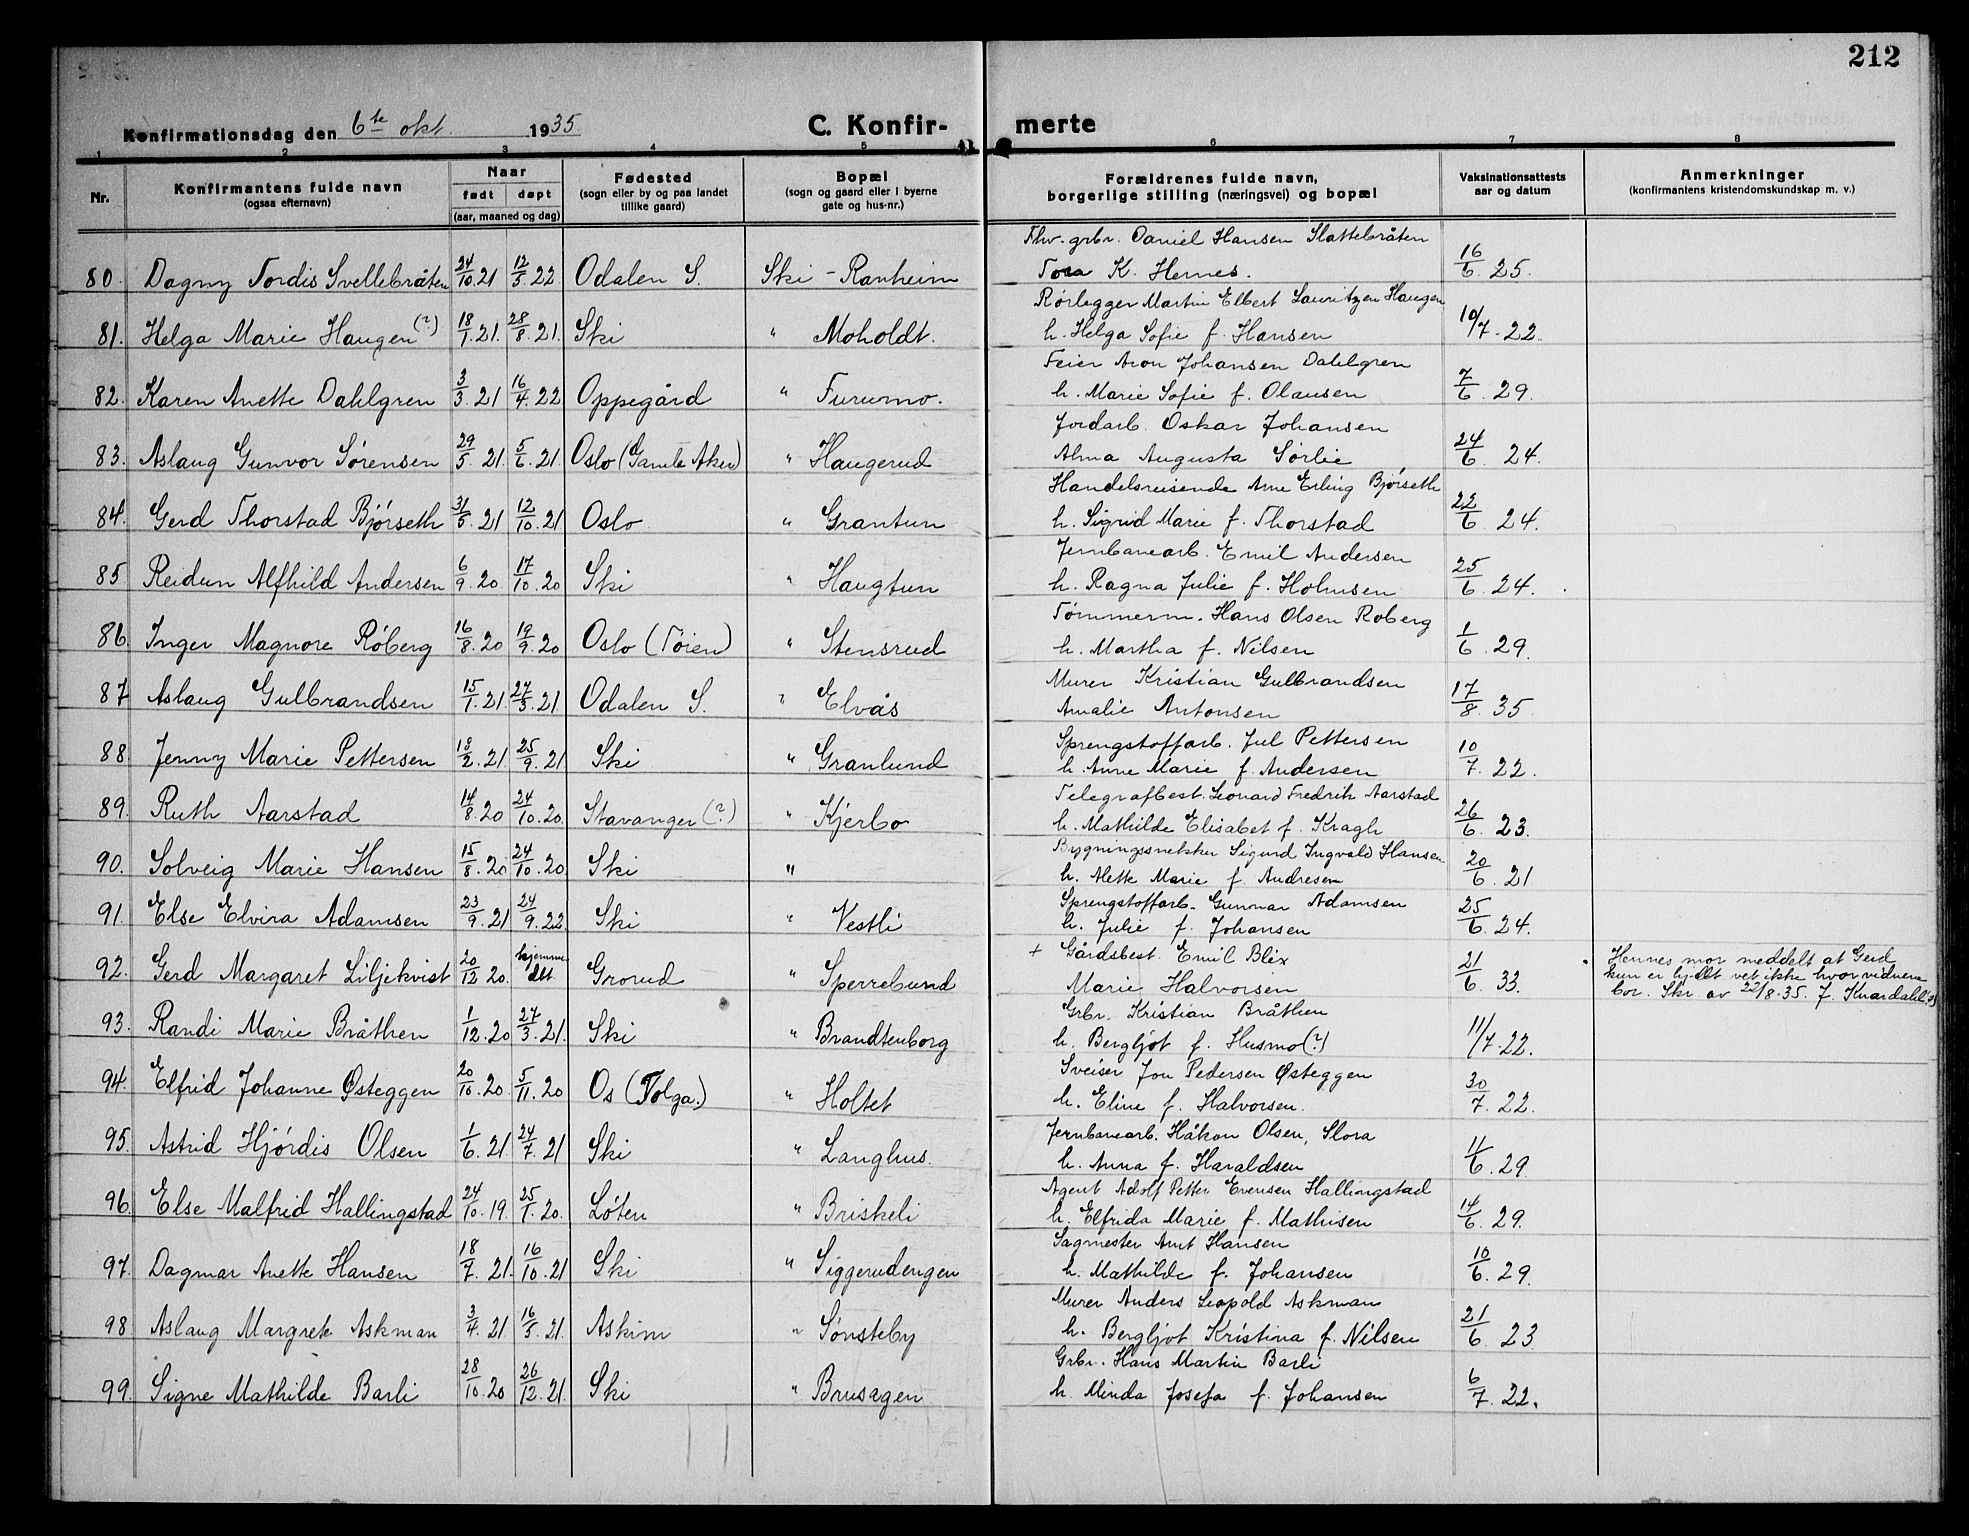 212
Konfirmationsdag den 6te okt. 1935.
C. Konfir- merte
1 2 3 4 5 6 7 8
Nr. Konfirmantens fulde navn (ogsaa efternavn) Naar født døpt (aar, maaned og dag) Fødested (sogn eller by og paa landet tillike gaard) Bopæl (sogn og gaard eller i byerne gate og hus-nr.) Forældrenes fulde navn, borgerlige stilling (næringsvei) og bopæl Vaksinationsattests aar og datum Anmerkninger (konfirmantens kristendomskundskap m. v.)
Fhv. grbr. Daniel Hansen Slattebråten
80. Dagny Tordis Svellebråten 24/10.21 12/5.22 Odalen S. Ski - Ranheim Tora K. Hernes. 16/6.25.
Rørlegger Martin Elbert Lauritzen Haugen
81. Helga Marie Haugen (?) 18/1.21. 28/8.21. Ski " Moholdt. h. Helga Sofie f. Hansen 10/7.22.
Feier Aron Johansen Dahlgren
82. Karen Anette Dahlgren 3/3.21 16/4.22 Oppegård " Furumo. h. Marie Sofie f. Olausen 7/6.29.
Jordarb. Oskar Johansen
83. Aslaug Gunvor Sørensen 29/5.21. 5/6.21. Oslo (Gamle Aker) " Haugerud Alma Augusta Sørlie 24/6.24.
Handelsreisende Arne Erling Bjørseth
84. Gerd Thorstad Bjørseth 31/5.21 12/10.21 Oslo " Grantun h. Sigrid Marie f. Thorstad 22/6.24.
Jernbanearb. Emil Andersen
85 Reidun Alfhild Andersen 6/9.20 17/10.20 Ski " Haugtun h. Ragna Julie f. Holmsen 25/6.24.
Tømmerm. Hans Olsen Røberg
86. Inger Magnore Røberg 16/8.20 19/9.20 Oslo (Tøien) " Stensrud h. Martha f. Nilsen 1/6.29.
Murer Kristian Gulbrandsen
87 Aslaug Gulbrandsen 15/1.21. 27/3.21. Odalen S. " Elvås Amalie Antonsen 17/8.35.
Sprengstoffarb. Jul Pettersen
88. Jenny Marie Pettersen 18/2.21. 25/9.21 Ski " Granlund h. Anne Marie f. Andersen 10/7.22.
Telegrafbest. Leonard Fredrik Aarstad
89. Ruth Aarstad 14/8.20 24/10.20. Stavanger (?) " Kjerbo h. Mathilde Elisabet f. Kragh 26/6.23.
Bygningssnekker Sigurd Ingvald Hansen
90. Solveig Marie Hansen 15/8.20 24/10.20 Ski " h. Alette Marie f. Andresen 20/6.21
Sprengstoffarb. Gunnar Adamsen
91. Else Elvira Adamsen 23/9.21 24/9.22. Ski " Vestli h. Julie f. Johansen 25/6.24.
+ Gårdsbest. Emil Blix
92. Gerd Margaret Liljekvist 20/12.20. hjemme døt Grorud " Sperrebund Marie Halvorsen 21/6.33. Hennes mor meddelt at Gerd
kun er hj. døt vet ikke hvor vidnene
bor. Skr. av 22/8.35.
Grbr. Kristian Bråthen
93. Randi Marie Bråthen 1/12.20 27/3.21. Ski " Brandtenborg h. Bergljot f. Husmo (?) 11/7.22.
Sveiser Jon Pedersen Østeggen
94. Elfrid Johanne Østeggen 20/10.20. 5/11.20 Os (Tolga.) " Holtet h. Eline f. Halvorsen. 30/7.22.
Jernbanearb. Håkon Olsen, Slora
95. Astrid Hjørdis Olsen 1/6.21. 24/7.21 Ski " Langhus. h. Anna f. Haraldsen 11/6.29
Agent Adolf Petter Evensen Hallingstad
96. Else Malfrid Hallingstad 24/10.19. 25/1.20. Løten " Briskeli h. Elfrida Marie f. Mathisen 14/6.29.
Sagmester Arnt Hansen
97. Dagmar Anette Hansen 18/7.21. 16/10.21 Ski " Siggerudengen h. Mathilde f. Johansen 10/6.29.
Murer Anders Leopold Askman
98 Aslaug Margrete Askman 3/4.21. 16/5.21. Askim " Sønsteby h. Bergljot Kristina f. Nilsen 21/6.23
Grbr. Hans Martin Barli
99. Signe Mathilde Barli 28/10.20 26/12.21. Ski " Brusagen h. Minda Josefa f. Johansen 6/7.22.